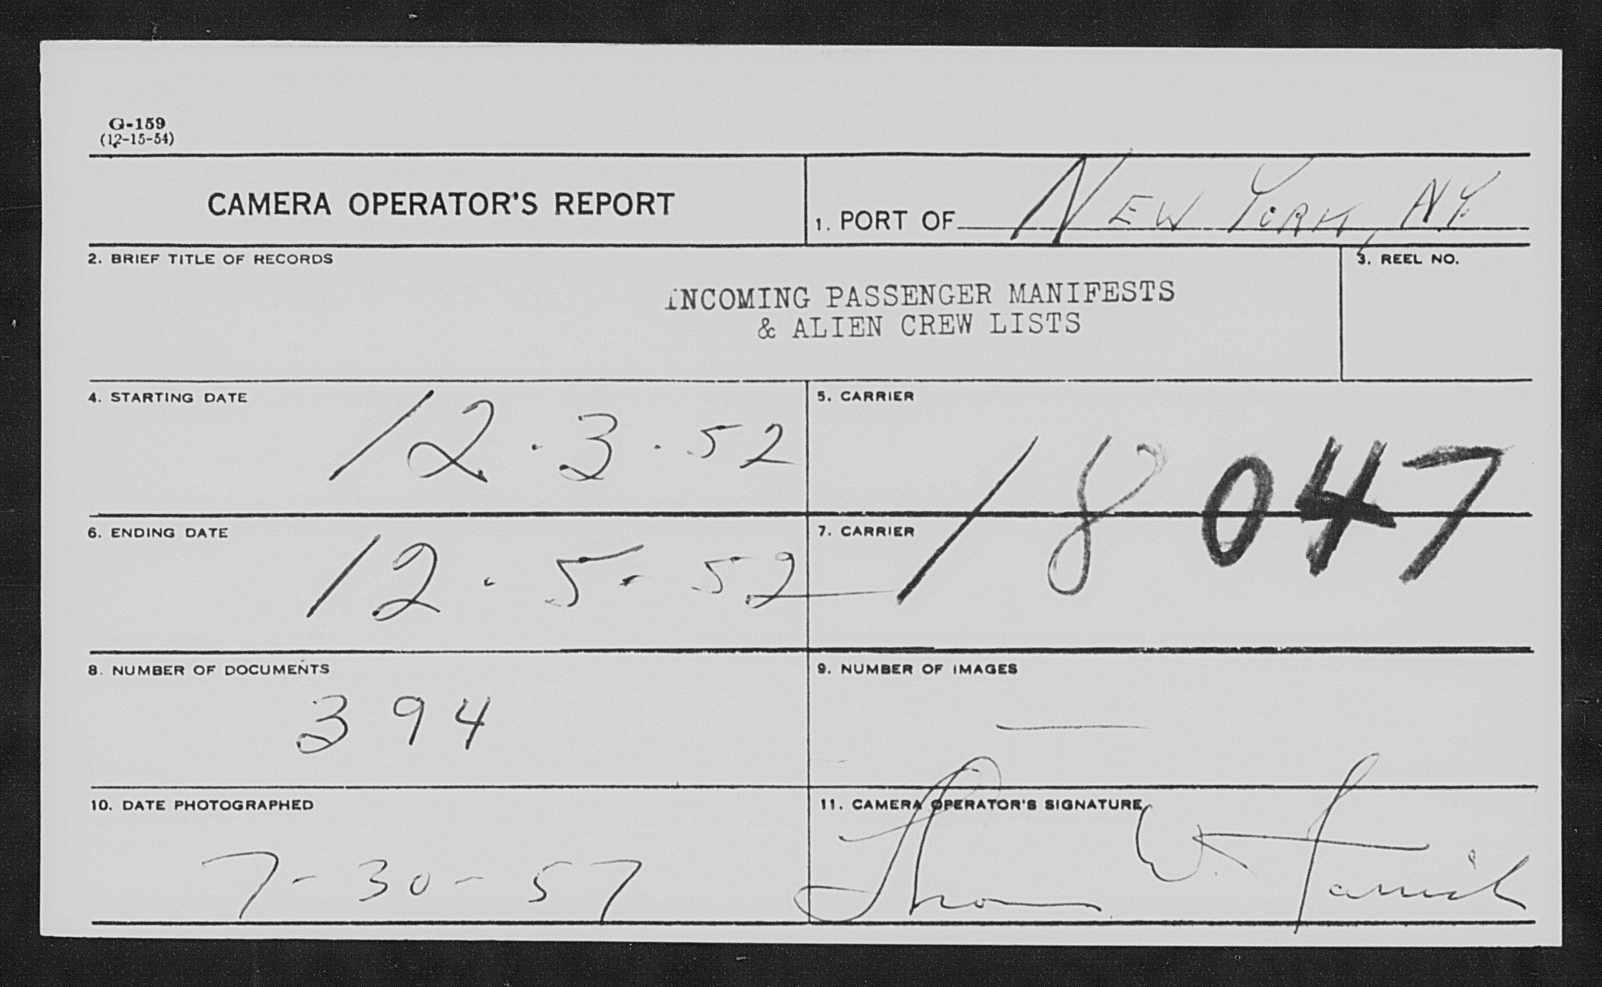 G-159
(12-15-54)
CAMERA OPERATOR'S REPORT
1. PORT OF NEW YORK, N.Y.
2. BRIEF TITLE OF RECORDS
INCOMING PASSENGER MANIFESTS
& ALIEN CREW LISTS
3. REEL NO.
4. STARTING DATE
12.3.52
5. CARRIER
18047
6. ENDING DATE
12.5.52
7. CARRIER
8. NUMBER OF DOCUMENTS
394
9. NUMBER OF IMAGES
—
10. DATE PHOTOGRAPHED
7-30-57
11. CAMERA OPERATOR'S SIGNATURE
W.